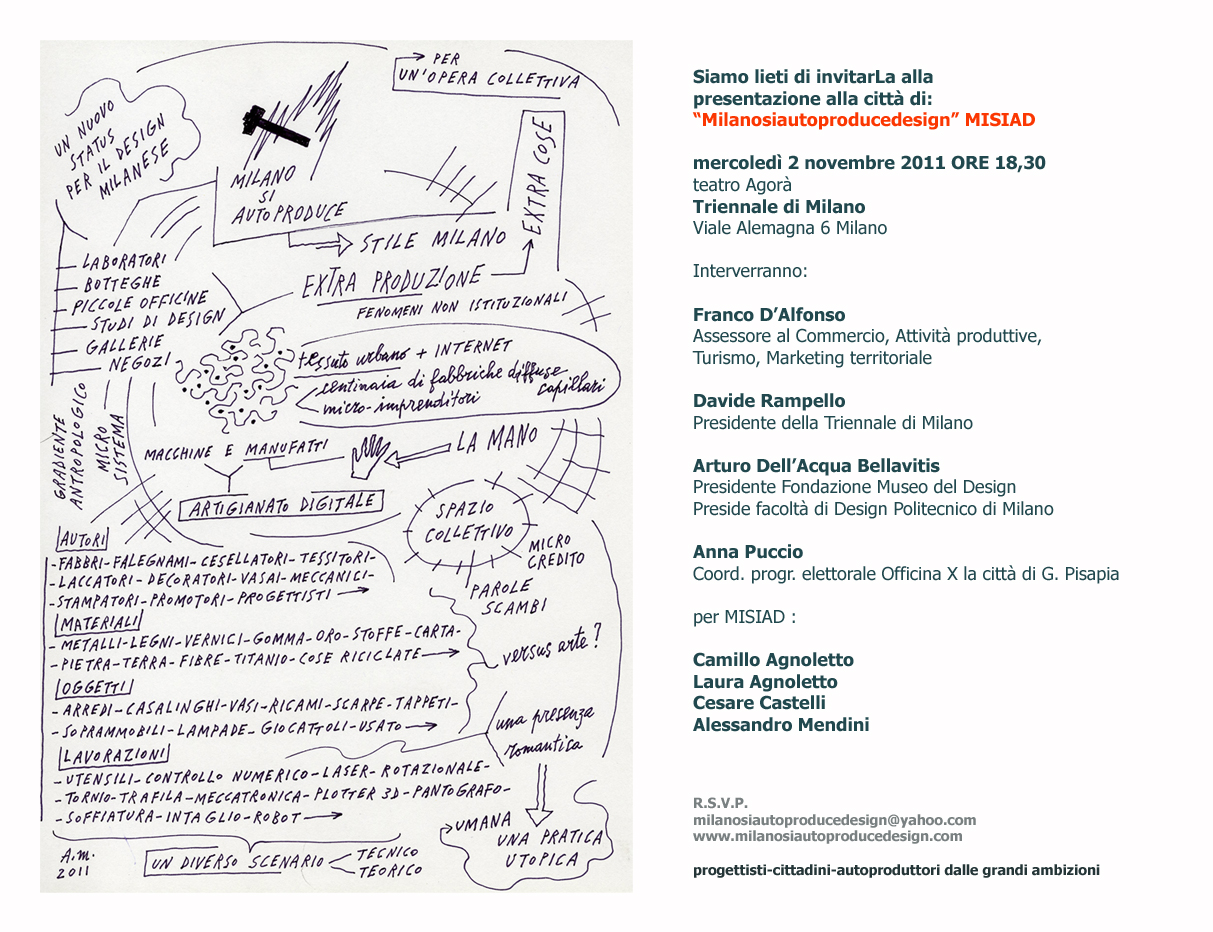 PER
UN'OPERA COLLETTIVA
UN NUOVO
STATUS
PER IL DESIGN
MILANESE
MILANO
SI
AUTOPRODUCE
EXTRA COSE
STILE MILANO
EXTRA PRODUZIONE
FENOMENI NON ISTITUZIONALI
LABORATORI
BOTTEGHE
PICCOLE OFFICINE
STUDI DI DESIGN
GALLERIE
NEGOZI
tessuto urbano + INTERNET
centinaia di fabbriche diffuse
capillari
micro-imprenditori
GRADIENTE
ANTROPOLOGICO
MICRO
SISTEMA
MACCHINE E MANUFATTI
LA MANO
ARTIGIANATO DIGITALE
SPAZIO
COLLETTIVO
MICRO
CREDITO
PAROLE
SCAMBI
AUTORI
-FABBRI-FALEGNAMI-CESELLATORI-TESSITORI-
-LACCATORI-DECORATORI-VASAI-MECCANICI-
-STAMPATORI-PROMOTORI-PROGETTISTI
MATERIALI
-METALLI-LEGNI-VERNICI-GOMMA-ORO-STOFFE-CARTA-
-PIETRA-TERRA-FIBRE-TITANIO-COSE RICICLATE
versus arte?
OGGETTI
-ARREDI-CASALINGHI-VASI-RICAMI-SCARPE-TAPPETI-
-SOPRAMMOBILI-LAMPADE-GIOCATTOLI-USATO
una presenza
romantica
LAVORAZIONI
-UTENSILI-CONTROLLO NUMERICO-LASER-ROTAZIONALE-
-TORNIO-TRAFILA-MECCATRONICA-PLOTTER 3D-PANTOGRAFO-
-SOFFIATURA-INTAGLIO-ROBOT
UMANA
UNA PRATICA
UTOPICA
A.M.
2011
UN DIVERSO SCENARIO
TECNICO
TEORICO
Siamo lieti di invitarLa alla
presentazione alla città di:
“Milanosiautoproducedesign” MISIAD
mercoledì 2 novembre 2011 ORE 18,30
teatro Agorà
Triennale di Milano
Viale Alemagna 6 Milano
Interverranno:
Franco D’Alfonso
Assessore al Commercio, Attività produttive,
Turismo, Marketing territoriale
Davide Rampello
Presidente della Triennale di Milano
Arturo Dell’Acqua Bellavitis
Presidente Fondazione Museo del Design
Preside facoltà di Design Politecnico di Milano
Anna Puccio
Coord. progr. elettorale Officina X la città di G. Pisapia
per MISIAD :
Camillo Agnoletto
Laura Agnoletto
Cesare Castelli
Alessandro Mendini
R.S.V.P.
milanosiautoproducedesign@yahoo.com
www.milanosiautoproducedesign.com
progettisti-cittadini-autoproduttori dalle grandi ambizioni